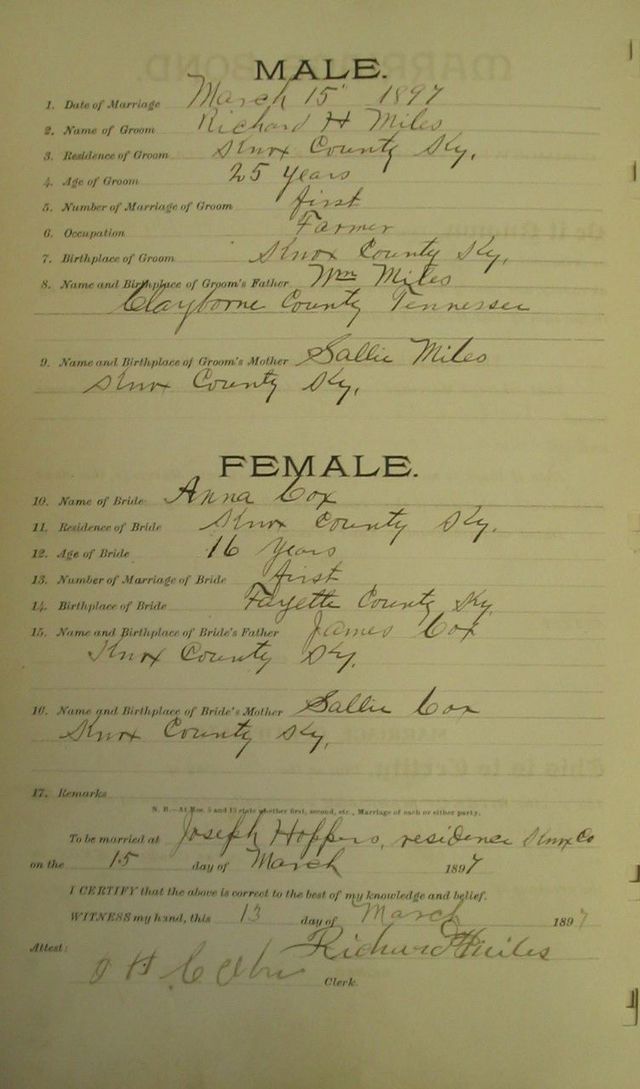 MALE.
1. Date of Marriage March 15 1897
2. Name of Groom Richard H Miles
3. Residence of Groom Knox County Ky.
4. Age of Groom 25 years
5. Number of Marriage of Groom first
6. Occupation Farmer
7. Birthplace of Groom Knox County Ky.
8. Name and Birthplace of Groom's Father Wm Miles
Clayborne County Tennessee
9. Name and Birthplace of Groom's Mother Sallie Miles
Knox County Ky.
FEMALE.
10. Name of Bride Anna Cox
11. Residence of Bride Knox County Ky.
12. Age of Bride 16 Years
13. Number of Marriage of Bride first
14. Birthplace of Bride Fayette County Ky.
15. Name and Birthplace of Bride's Father James Cox
Knox County Ky.
16. Name and Birthplace of Bride's Mother Sallie Cox
Knox County Ky.
17. Remarks
N. B.—At Nos. 5 and 13 state whether first, second, etc., Marriage of each or either party.
To be married at Joseph Hoppers, residence Knox Co
on the 15 day of March 1897
I CERTIFY that the above is correct to the best of my knowledge and belief.
WITNESS my hand, this 13 day of March 1897
Richard H Miles
Attest:
Clerk.